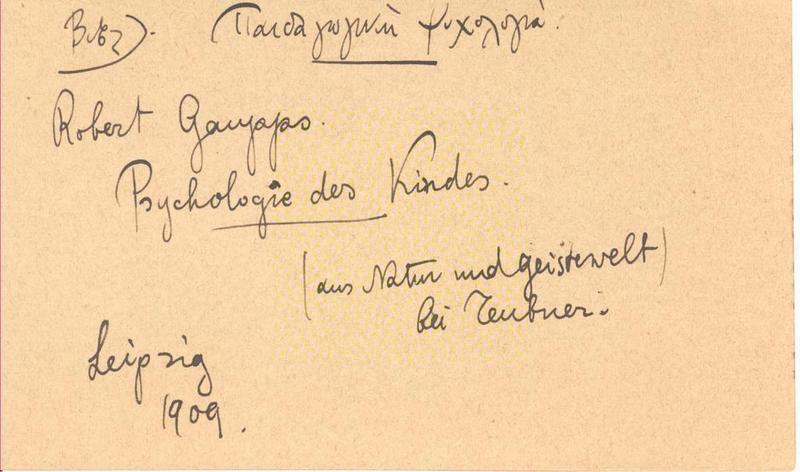 Βιβλ). (Παιδαγωγικὴ ψυχολογία.
Robert Gaupp.
Psychologie des Kindes.
(aus Natur und geisteswelt)
bei Teubner.
Leipzig
1909.